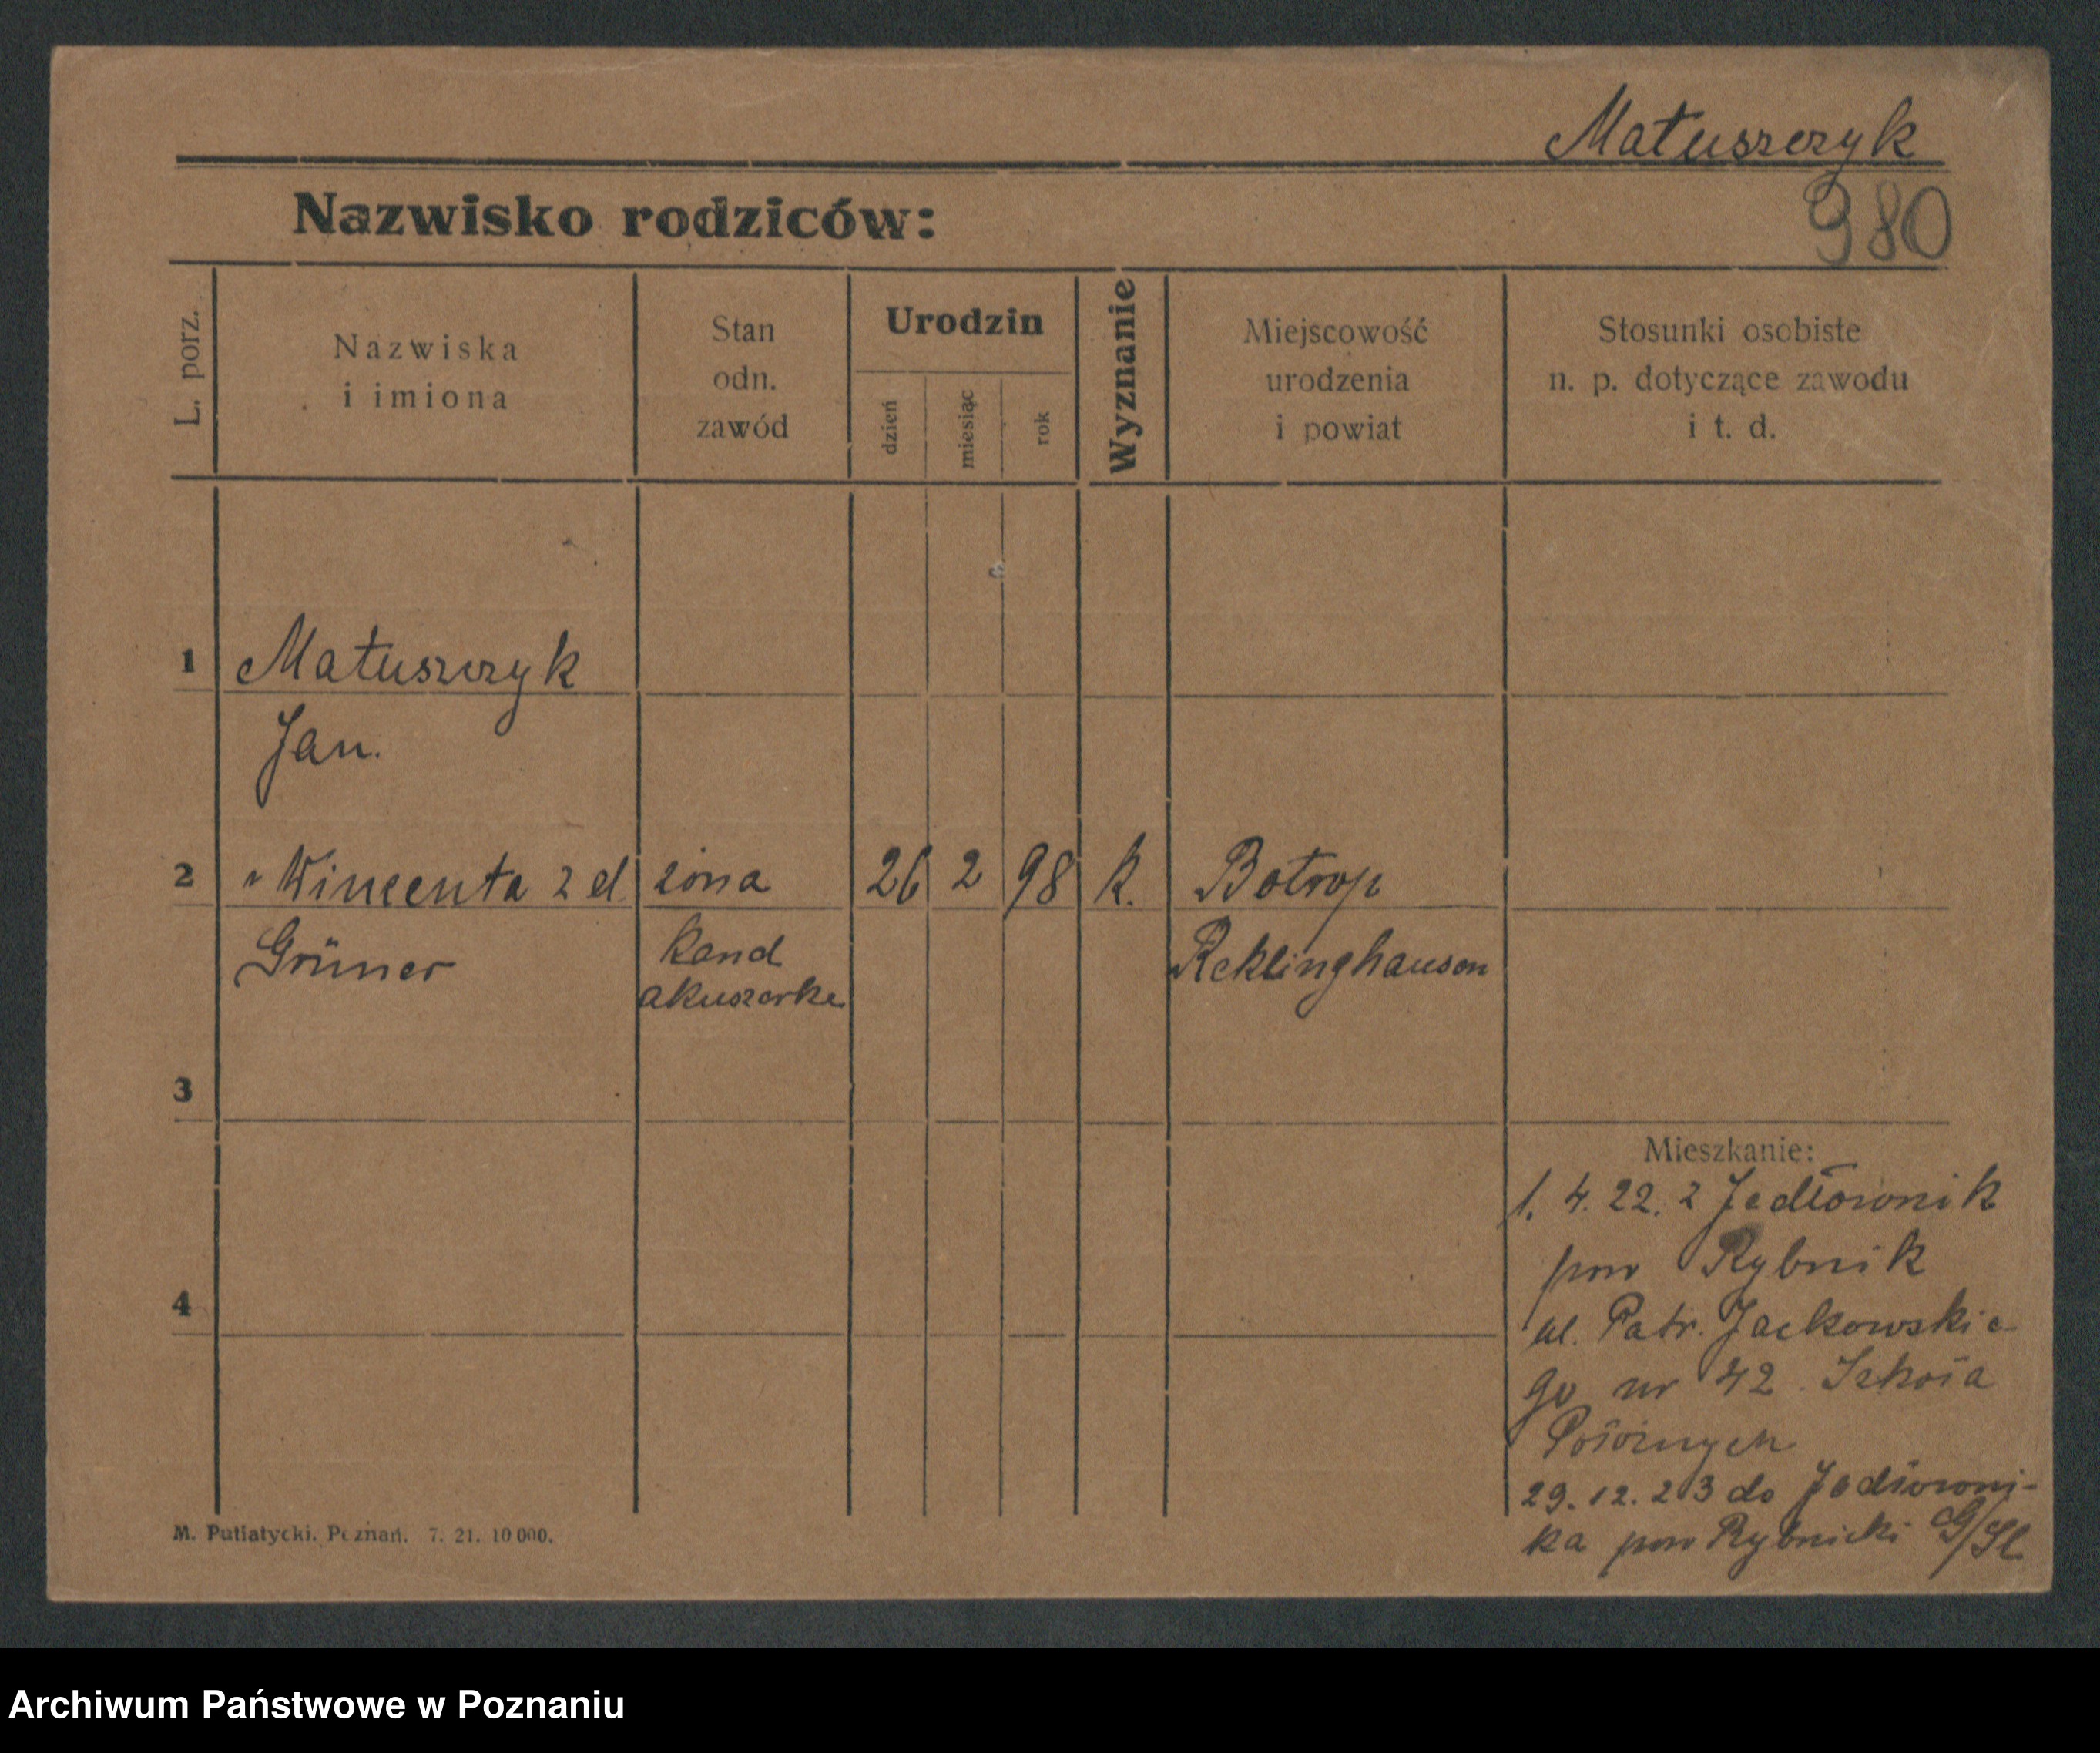 Matuszczyk
Nazwisko rodziców:
980
L. porz.
Nazwiska
i imiona
Stan
odn.
zawód
Urodzin
dzień
miesiąc
rok
Wyznanie
Miejscowość
urodzenia
i powiat
Stosunki osobiste
n. p. dotyczące zawodu
i t. d.
1 Matuszczyk
Jan.
2 " Wincenta z d. żona 26 2 98 k. Botrop
Grüner Kand Reklinghausen
akuszerka
3
Mieszkanie:
1. 4. 22. z Jedłownik
pow Rybnik
4
ul. Patr. Jackowskie-
go nr 42. Szkoła
Położnych
29. 12. 23 do Jedłowni-
ka pow Rybnicki G/Śl.
M. Putiatycki. Poznań. 7. 21. 10 000.
Archiwum Państwowe w Poznaniu